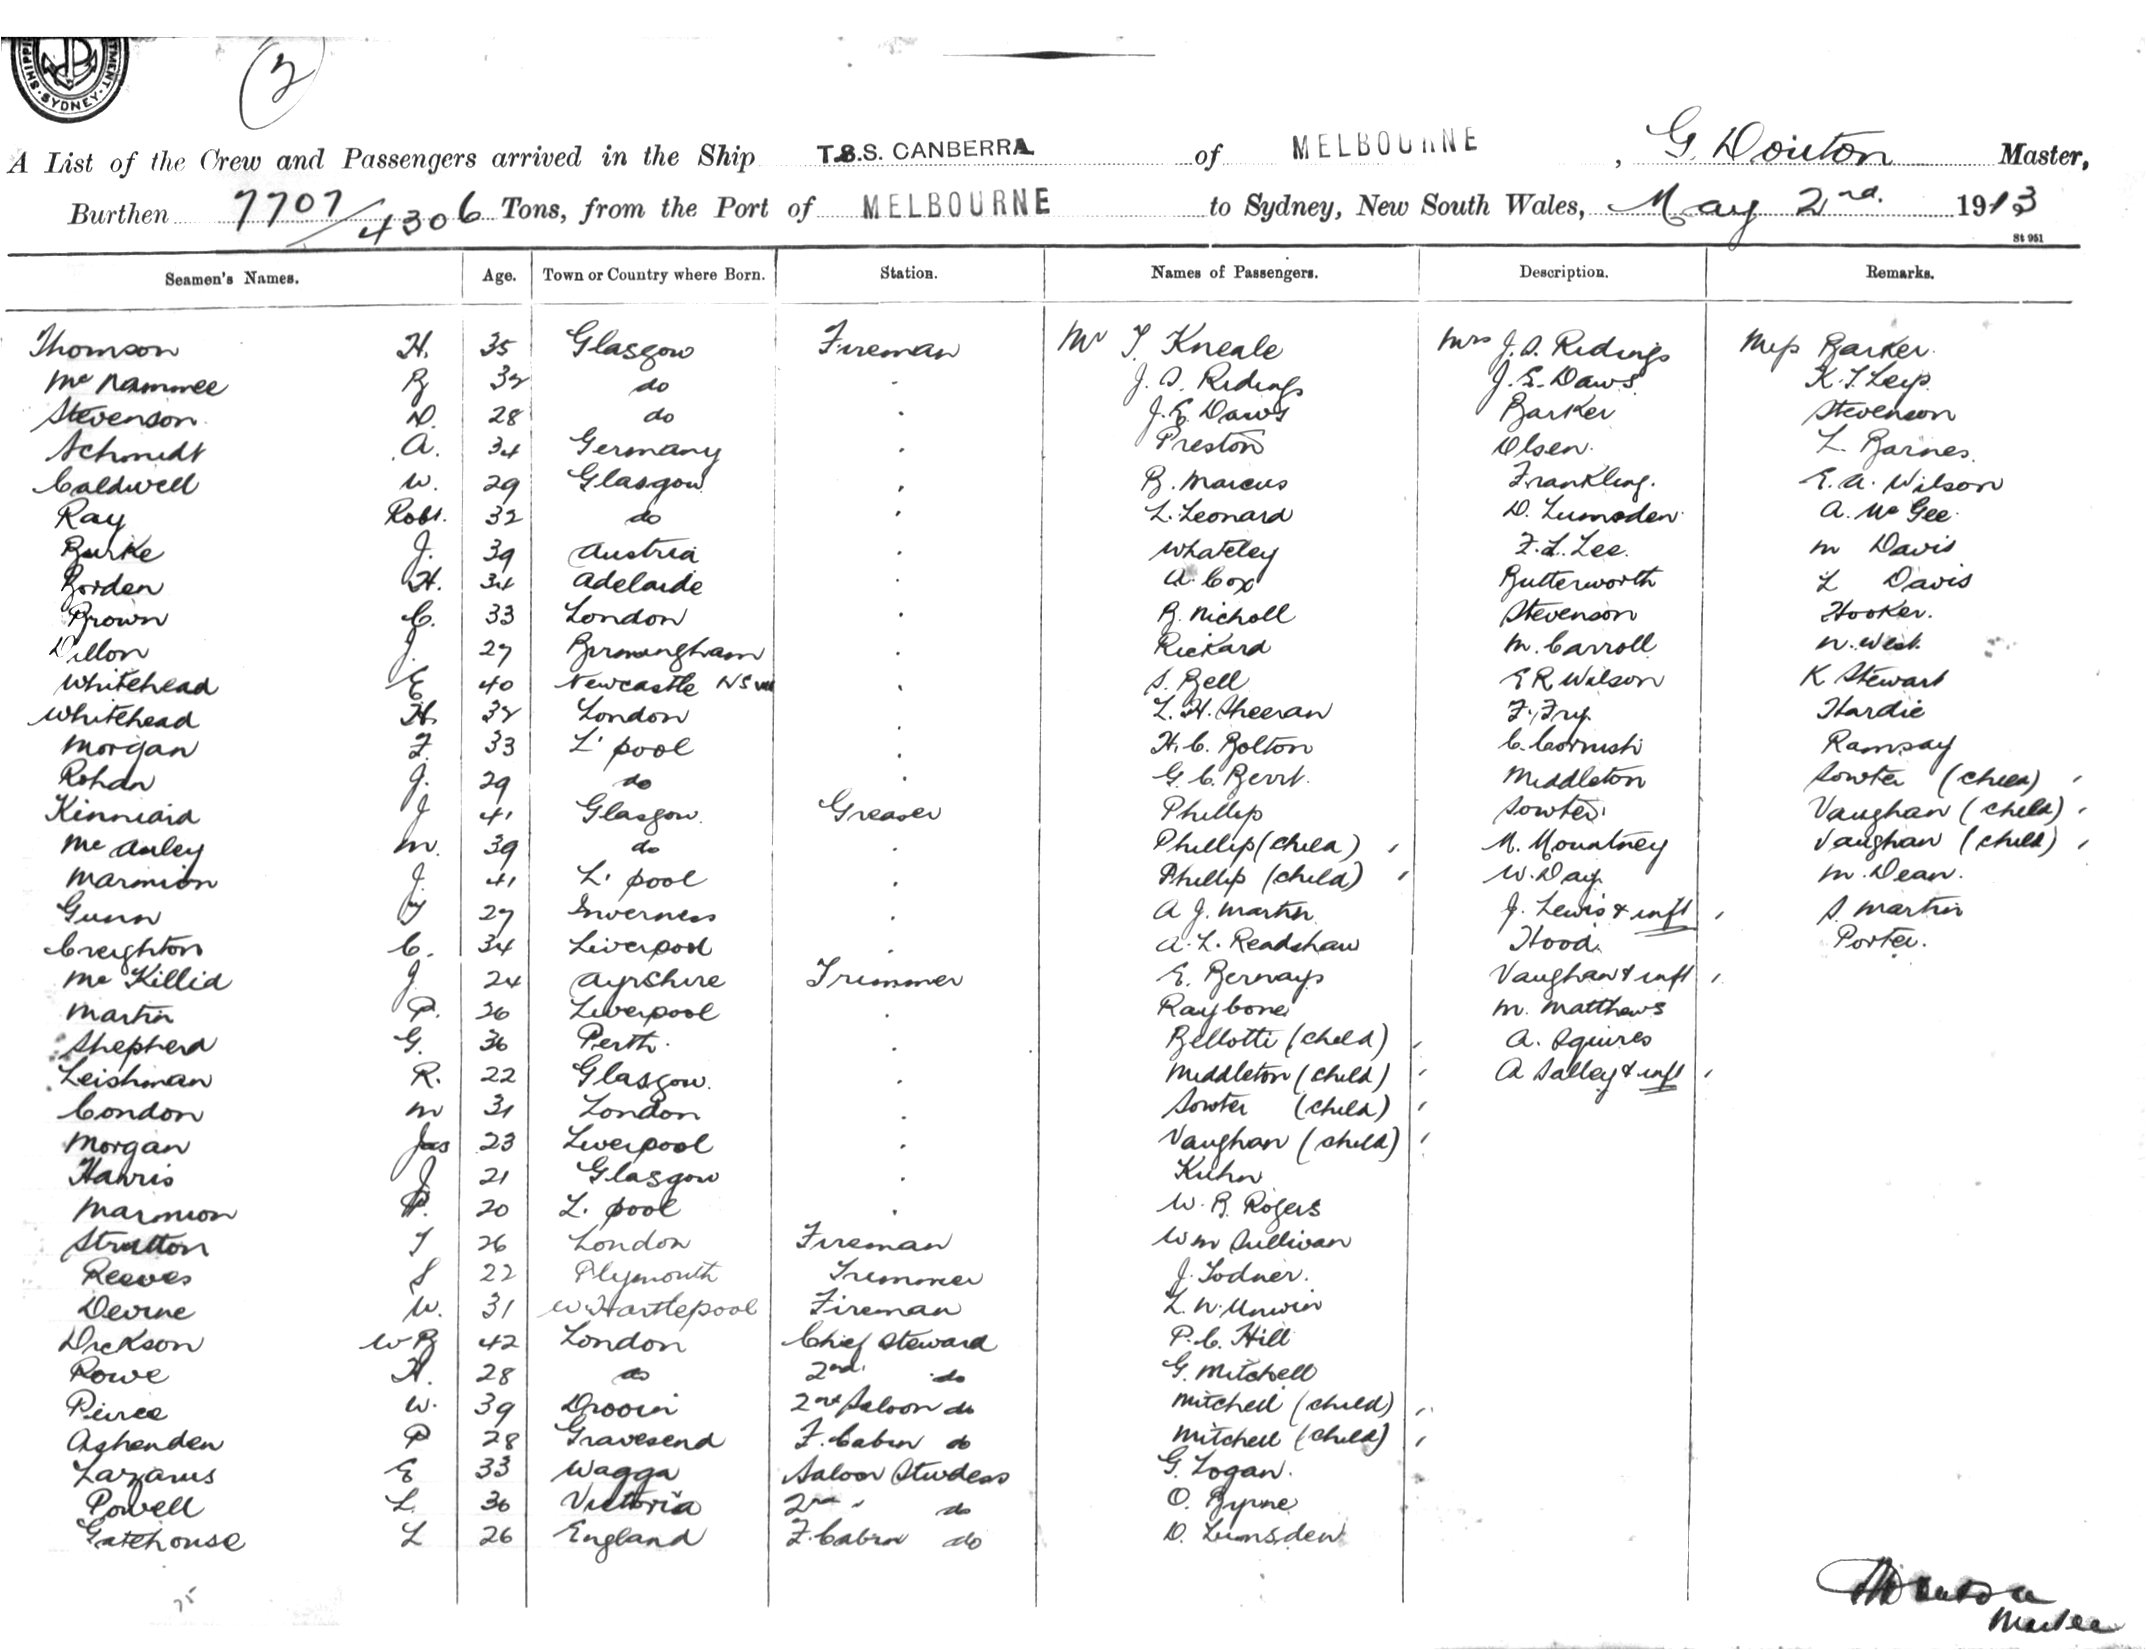 SHIPPI TMENT. SYDNEY.
A List of the Crew and Passengers arrived in the Ship T.S.S. CANBERRA of MELBOURNE, G. Douton Master,
Burthen 7707/4306 Tons, from the Port of MELBOURNE to Sydney, New South Wales, May 2nd. 1913
St 951
Seamen's Names. Age. Town or Country where Born. Station. Names of Passengers. Description. Remarks.
Thomson H. 35 Glasgow Fireman Mr T. Kneale Mrs J.S. Ridings Miss Barker.
32 do J. S. Ridings J.E. Daws K.
Stevenson D. 28 do J.E. Daws Barker Stevenson
Schmidt A. 34 Germany Preston Olsen. L. Barnes.
Caldwell W. 29 Glasgow B. Marcus Frankling. E.A. Wilson
Ray Robt. 32 do L. Leonard D. Lumsden A. McGee
Burke J. 39 Austria Whateley F.L. Lee. M Davis
Borden H. 34 Adelaide A. Cox Butterworth L Davis
Brown C. 33 London B. Nicholl Stevenson Hooker.
Dillon J. 27 Birmingham Rickard M. Carroll N. West.
Whitehead E 40 Newcastle NSW S. Bell E R Wilson K Stewart
Whitehead H. 32 London L. H. Sheeran F. Fry. Hardie
Morgan F. 33 L'pool H. C. Bolton C. Cornish Ramsay
Rohan J. 29 do G. C. Middleton Sowter (child)
Kinniaid J 41 Glasgow. Greaser Phillip Sowter Vaughan (child)
McAuley M. 39 do Phillip (child) M. Mountney Vaughan (child)
Marmion J. 41 L'pool Phillip (child) W. Day M. Dean.
Gunn J 27 Inverness A J. Martin J. Lewis & inft S. Martin
Creighton C. 34 Liverpool A. L. Readshaw Hood. Porter.
McKillid J. 24 Ayrshire Trimmer E. Bernays Vaughan & inft
Martin P. 26 Liverpool Raybone M. Matthews
Shepherd G. 36 Perth. Bellotti (child) A. Squires
Leishman R. 22 Glasgow. Middleton (child) A Salley & inft
Condon M 31 London Sowter (child)
Morgan Jas 23 Liverpool Vaughan (child)
Harris J 21 Glasgow Kuhn
Marmion P. 20 L. pool W. B. Rogers
Stratton T 26 London Fireman Wm Sullivan
Reeves S 22 Plymouth Trimmer J. Todner.
Devine W. 31 W Hartlepool Fireman L. N. Unwin
Dickson W B 42 London Chief Steward P. C. Hill
Rowe H. 28 do 2nd. do G. Mitchell
Peirce W. 39 2nd Saloon do Mitchell (child)
Ashenden P 28 Gravesend F. Cabin do Mitchell (child)
Lazarus E 33 Wagga Saloon Stwdess G. Logan.
Powell L. 36 Victoria 2nd " do O. Byrne
Gatehouse L 26 England F. Cabin do D. Lumsden
75
Master